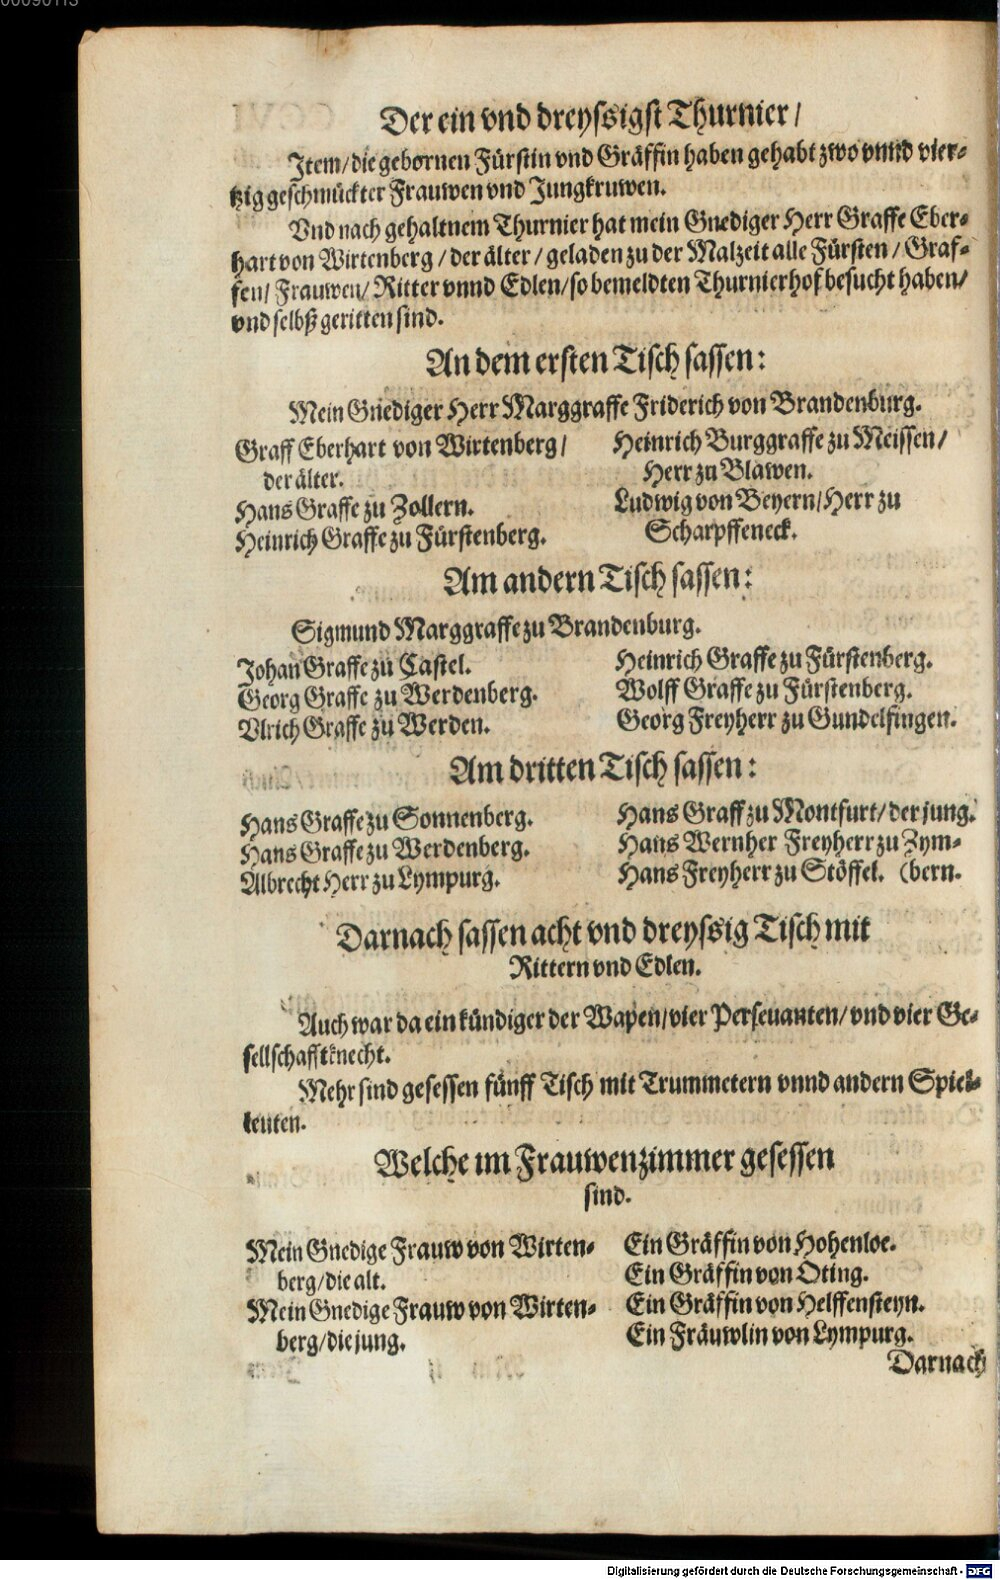 Der ein vnd dreyssigst Thurnier/
Item/ die gebornen Fürstin vnd Gräffin haben gehabt zwo vnnd vier-
tzig geschmückter Frauwen vnd Jungkruwen.
Vnd nach gehaltnem Thurnier hat mein Gnediger Herr Graffe Eber-
hart von Wirtenberg / der älter / geladen zu der Malzeit alle Fürsten / Graf-
fen/ Frauwen/ Ritter vnnd Edlen/ so bemeldten Thurnierhof besucht haben/
vnd selbß geritten sind.
An dem ersten Tisch sassen:
Mein Gnediger Herr Marggraffe Friderich von Brandenburg.
Graff Eberhart von Wirtenberg/
der älter.
Hans Graffe zu Zollern.
Heinrich Graffe zu Fürstenberg.
Heinrich Burggraffe zu Meissen/
Herr zu Blawen.
Ludwig von Beyern/ Herr zu
Scharpffeneck.
Am andern Tisch sassen:
Sigmund Marggraffe zu Brandenburg.
Johan Graffe zu Castel.
Georg Graffe zu Werdenberg.
Vlrich Graffe zu Werden.
Heinrich Graffe zu Fürstenberg.
Wolff Graffe zu Fürstenberg.
Georg Freyherr zu Gundelfingen.
Am dritten Tisch sassen:
Hans Graffe zu Sonnenberg.
Hans Graffe zu Werdenberg.
Albrecht Herr zu Lympurg.
Hans Graff zu Montfurt/ der jung.
Hans Wernher Freyherr zu Zym-
Hans Freyherr zu Stöffel. (bern.
Darnach sassen acht vnd dreyssig Tisch mit
Rittern vnd Edlen.
Auch war da ein kündiger der Wapen/ vier Perseuanten/ vnd vier Ge-
sellschafftknecht.
Mehr sind gesessen fünff Tisch mit Trummetern vnnd andern Spiel-
leuten.
Welche im Frauwenzimmer gesessen
sind.
Mein Gnedige Frauw von Wirten-
berg/ die alt.
Mein Gnedige Frauw von Wirten-
berg/ die jung.
Ein Gräffin von Hohenloe.
Ein Gräffin von Oting.
Ein Gräffin von Helffensteyn.
Ein Fräuwlin von Lympurg.
Darnach
Digitalisierung gefördert durch die Deutsche Forschungsgemeinschaft - DFG